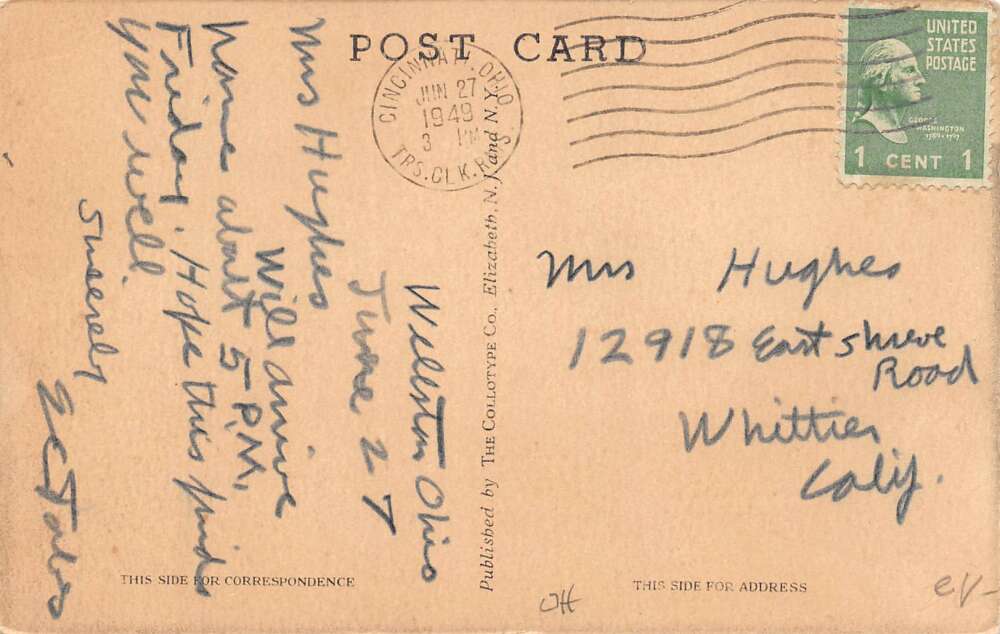 POST CARD
CINCINNATI, OHIO
JUN 27
1949
3 PM
TRS. CLK. R.P.S
UNITED
STATES
POSTAGE
GEORGE
WASHINGTON
1789-1797
1 CENT 1
Wellston Ohio
June 27
Mrs Hughes
Will arrive
home about 5 P.M.
Friday. Hope this finds
you well
Sincerely
Published by THE COLLOTYPE CO., Elizabeth, N.J. and N.Y.
Mrs Hughes
12918 East shreve
Road
Whittier
Calif.
THIS SIDE FOR CORRESPONDENCE
THIS SIDE FOR ADDRESS
OH